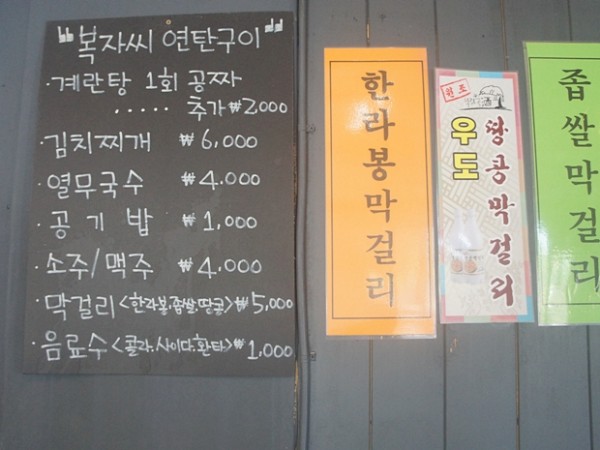 "복자씨 연탄구이"
·계란탕 1회 공짜
····· 추가 ₩2,000
·김치찌개 ₩6,000
·열무국수 ₩4,000
·공기밥 ₩1,000
·소주/맥주 ₩4,000
·막걸리<한라봉,좁쌀,땅콩>₩5,000
·음료수<콜라.사이다.환타>₩1,000
한라봉막걸리
원조
우도
땅콩막걸리
좁쌀막걸리